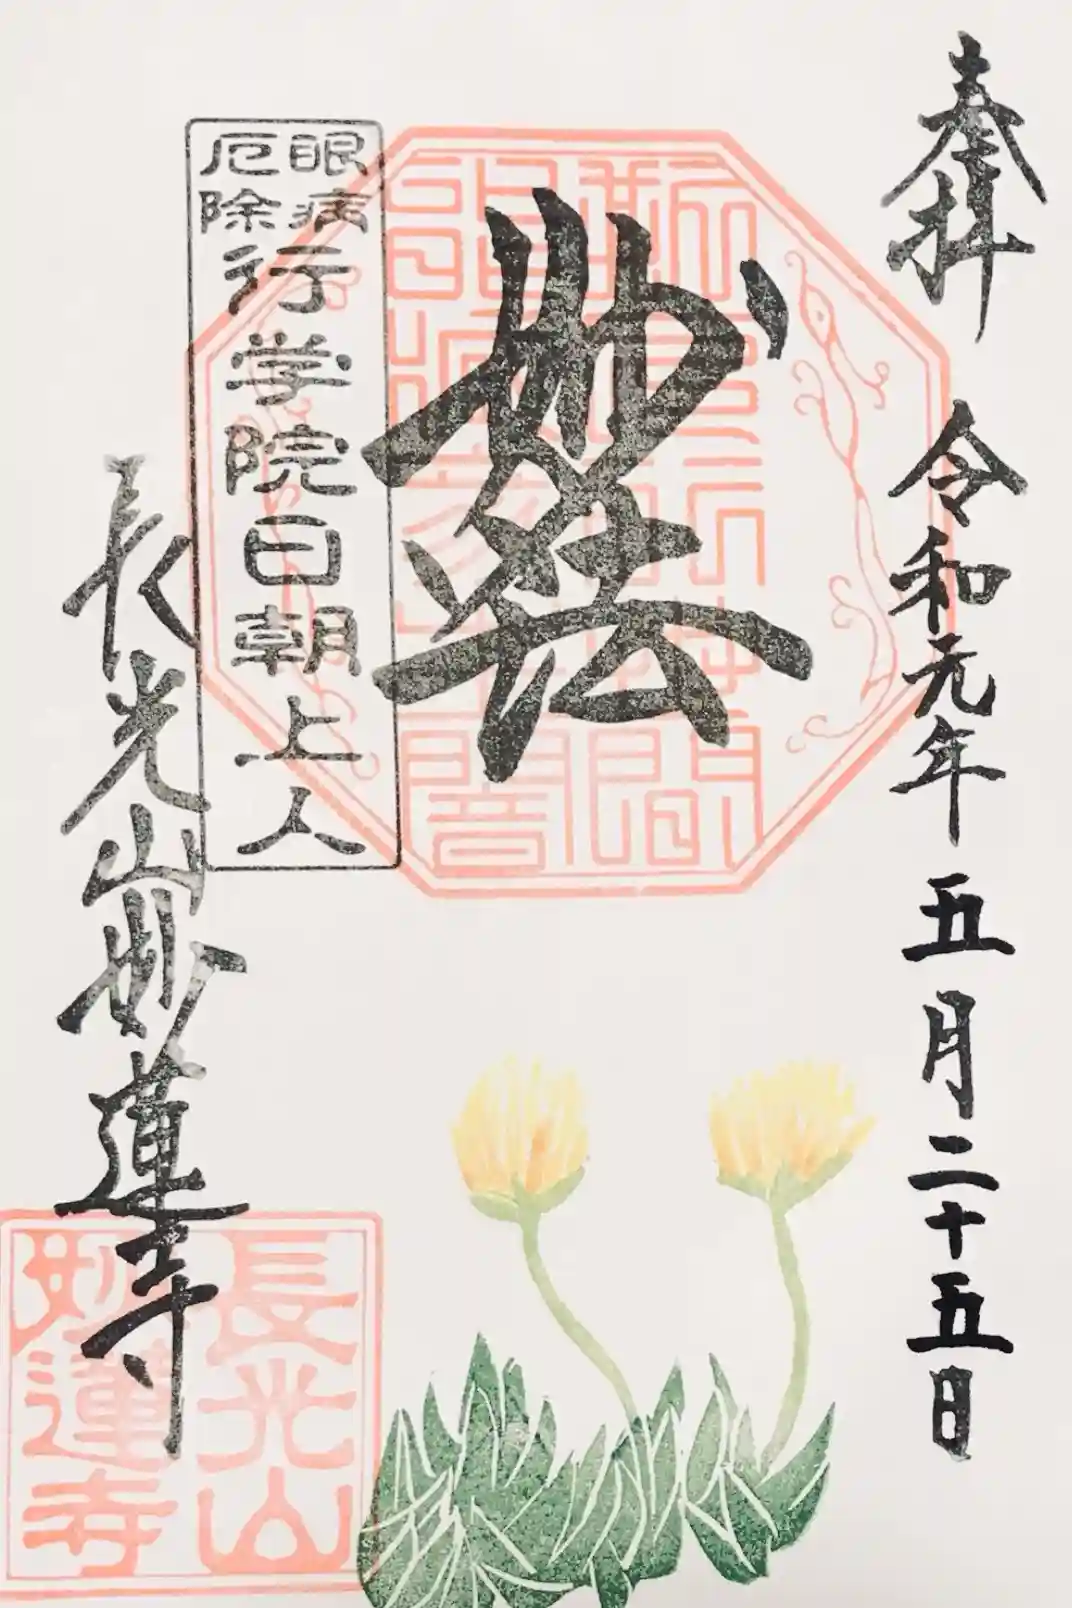 奉拝
令和元年五月二十五日
妙法
眼病
厄除
行学院日朝上人
長光山妙蓮寺
長光山
妙蓮寺